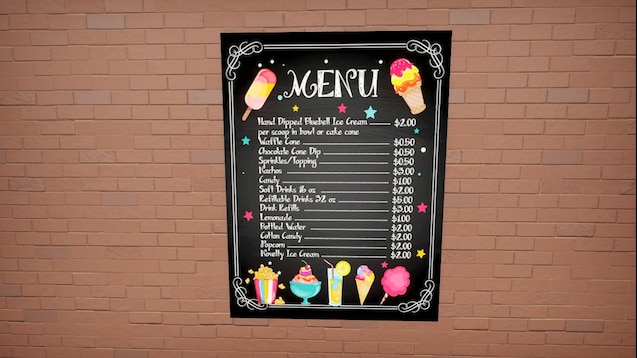 MENU
Hand Dipped Bluebell Ice Cream $2.00
per scoop in bowl or cake cone
Waffle Cone $0.50
Chocolate Cone Dip $0.50
Sprinkles/Topping $0.50
Nachos $3.00
Candy $1.00
Soft Drinks 16 oz $2.00
Refillable Drinks 32 oz $5.00
Drink Refills $3.00
Lemonade $1.00
Bottled Water $2.00
Cotton Candy $2.00
Popcorn $2.00
Novelty Ice Cream $2.00